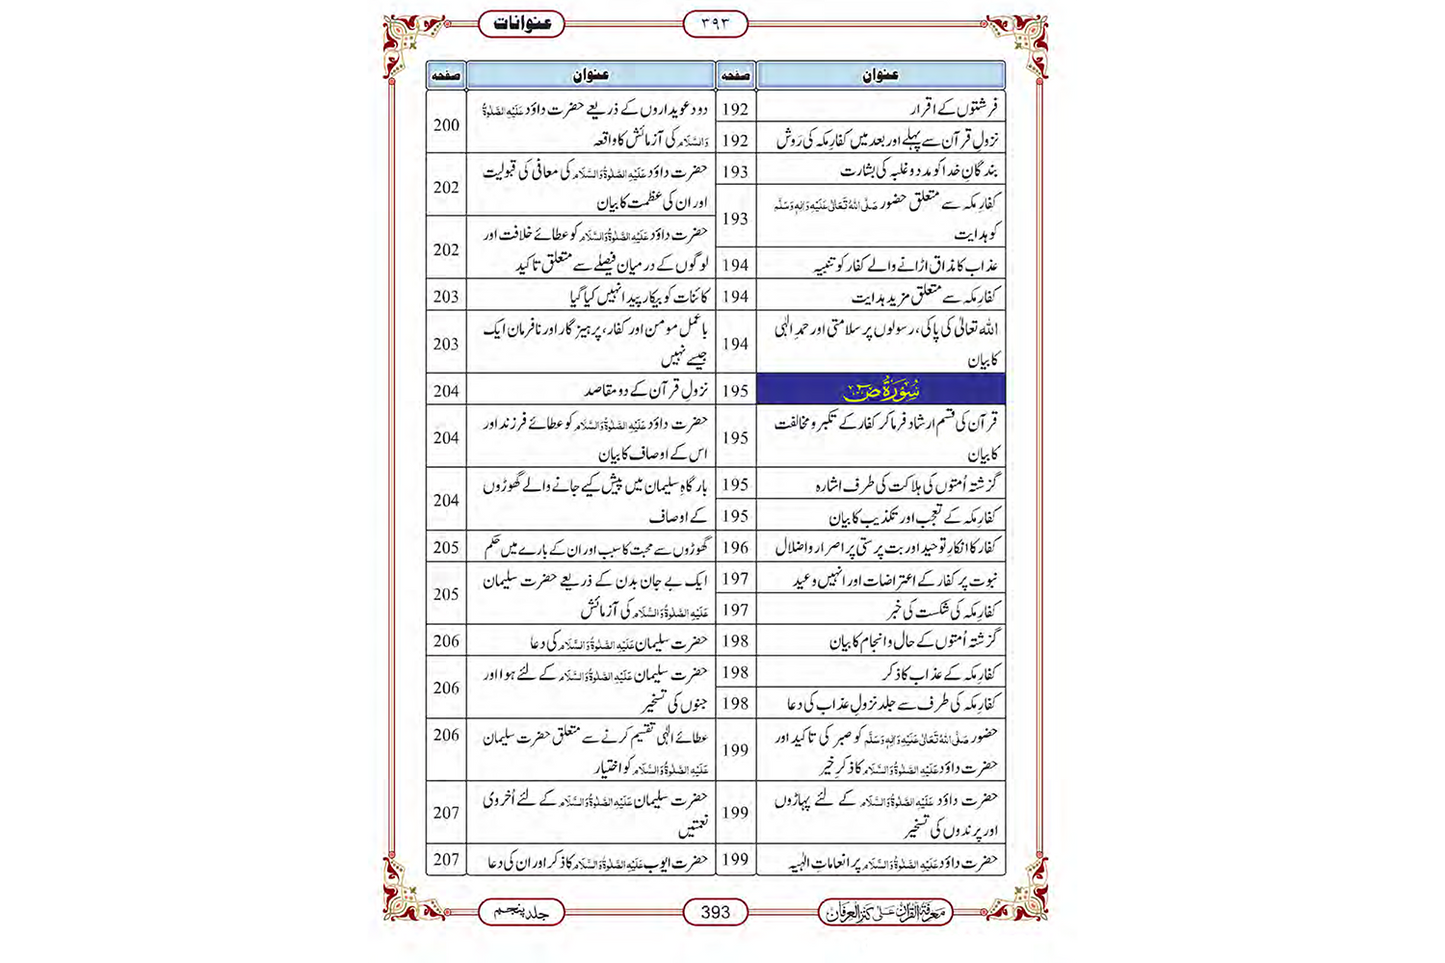 عنوانات
۳۹۳
عنوان صفحہ
فرشتوں کے اقرار 192
نزولِ قرآن سے پہلے اور بعد میں کفارِ مکہ کی رَوِش 192
بندگانِ خدا کو مدد و غلبہ کی بشارت 193
کفارِ مکہ سے متعلق حضور صَلَّی اللہُ تَعَالٰی عَلَیْہِ وَاٰلِہٖ وَسَلَّم
کو ہدایت 193
عذاب کا مذاق اڑانے والے کفار کو تنبیہ 194
کفارِ مکہ سے متعلق مزید ہدایت 194
اللہ تعالیٰ کی پاکی، رسولوں پر سلامتی اور حمدِ الٰہی
کا بیان 194
سُوْرَۃُ صٓ 195
قرآن کی قسم ارشاد فرما کر کفار کے تکبر و مخالفت
کا بیان 195
گزشتہ اُمتوں کی ہلاکت کی طرف اشارہ 195
کفارِ مکہ کے تعجب اور تکذیب کا بیان 195
کفار کا انکارِ توحید اور بت پرستی پر اصرار و اضلال 196
نبوت پر کفار کے اعتراضات اور انہیں وعید 197
کفارِ مکہ کی شکست کی خبر 197
گزشتہ اُمتوں کے حال و انجام کا بیان 198
کفارِ مکہ کے عذاب کا ذکر 198
کفارِ مکہ کی طرف سے جلد نزولِ عذاب کی دعا 198
حضور صَلَّی اللہُ تَعَالٰی عَلَیْہِ وَاٰلِہٖ وَسَلَّم کو صبر کی تاکید اور
حضرت داؤد عَلَیْہِ الصَّلٰوۃُ وَالسَّلَام کا ذکرِ خیر 199
حضرت داؤد عَلَیْہِ الصَّلٰوۃُ وَالسَّلَام کے لئے پہاڑوں
اور پرندوں کی تسخیر 199
حضرت داؤد عَلَیْہِ الصَّلٰوۃُ وَالسَّلَام پر انعاماتِ الٰہیہ 199
عنوان صفحہ
دو دعویداروں کے ذریعے حضرت داؤد عَلَیْہِ الصَّلٰوۃُ
وَالسَّلَام کی آزمائش کا واقعہ 200
حضرت داؤد عَلَیْہِ الصَّلٰوۃُ وَالسَّلَام کی معافی کی قبولیت
اور ان کی عظمت کا بیان 202
حضرت داؤد عَلَیْہِ الصَّلٰوۃُ وَالسَّلَام کو عطائے خلافت اور
لوگوں کے درمیان فیصلے سے متعلق تاکید 202
کائنات کو بیکار پیدا نہیں کیا گیا 203
باعمل مومن اور کفار، پرہیز گار اور نافرمان ایک
جیسے نہیں 203
نزولِ قرآن کے دو مقاصد 204
حضرت داؤد عَلَیْہِ الصَّلٰوۃُ وَالسَّلَام کو عطائے فرزند اور
اس کے اوصاف کا بیان 204
بارگاہِ سلیمان میں پیش کیے جانے والے گھوڑوں
کے اوصاف 204
گھوڑوں سے محبت کا سبب اور ان کے بارے میں حکم 205
ایک بے جان بدن کے ذریعے حضرت سلیمان
عَلَیْہِ الصَّلٰوۃُ وَالسَّلَام کی آزمائش 205
حضرت سلیمان عَلَیْہِ الصَّلٰوۃُ وَالسَّلَام کی دعا 206
حضرت سلیمان عَلَیْہِ الصَّلٰوۃُ وَالسَّلَام کے لئے ہوا اور
جنوں کی تسخیر 206
عطائے الٰہی تقسیم کرنے سے متعلق حضرت سلیمان
عَلَیْہِ الصَّلٰوۃُ وَالسَّلَام کو اختیار 206
حضرت سلیمان عَلَیْہِ الصَّلٰوۃُ وَالسَّلَام کے لئے اُخروی
نعمتیں 207
حضرت ایوب عَلَیْہِ الصَّلٰوۃُ وَالسَّلَام کا ذکر اور ان کی دعا 207
معرفۃ القرآن علی کنز العرفان
393
جلد پنجم